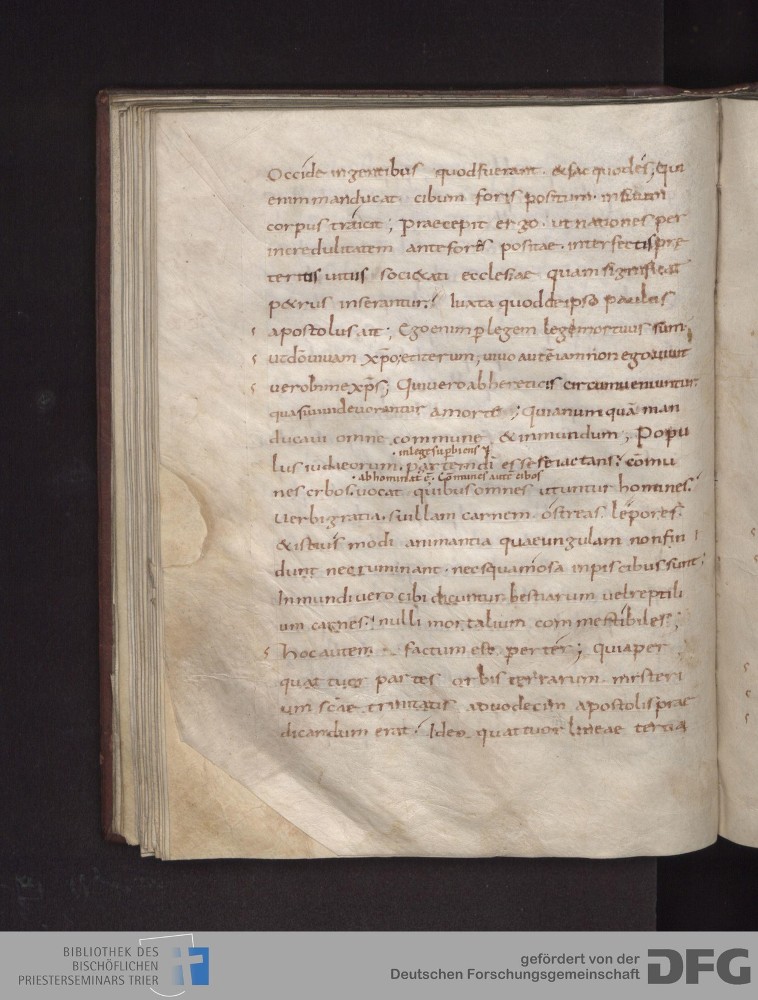 Occide in gentibus quod fuerant. & fac quod es; Qui
enim manducat. cibum foris positum. in suum
corpus traicit; Praecepit ergo. ut nationes per
incredulitatem ante fores positae. interfectis prę
teritis uitiis societati ecclesiae quam significat
p&rus inserantur; Iuxta quod & ipse paulus
apostolus ait; Ego enim p legem legi mortuus sum.
ut dō uiuam xpō et iterum; uiuo autē iam non ego uiuit
uero in me xps; Qui uero ab hereticis circumueniuntur
quasi uiui deuorantur a morte; Quia numquā man
ducaui omne commune & inmundum; Popu
. in lege superbiens
lus iudaeorum. partem dī esse se iactans. cōmu
. abhominat ē. Communes autē cibos
nes cibos uocat quibus omnes utuntur homines.
Verbi gratia. suillam carnem. ostreas. lepores.
& istius modi animantia quae ungulam non fin
dunt nec ruminant. nec squamosa in piscibus sunt.
Inmundi uero cibi dicuntur. bestiarum uel reptili
um carnes. nulli mortalium commestibiles;
Hoc autem factum est. per ter; quia per
quattuor partes orbis terrarum. misteri
um scāe trinitatis a duodecim apostolis prae
dicandum erat. Ideo quattuor lineae terna
BIBLIOTHEK DES
BISCHÖFLICHEN
PRIESTERSEMINARS TRIER
gefördert von der
Deutschen Forschungsgemeinschaft
DFG